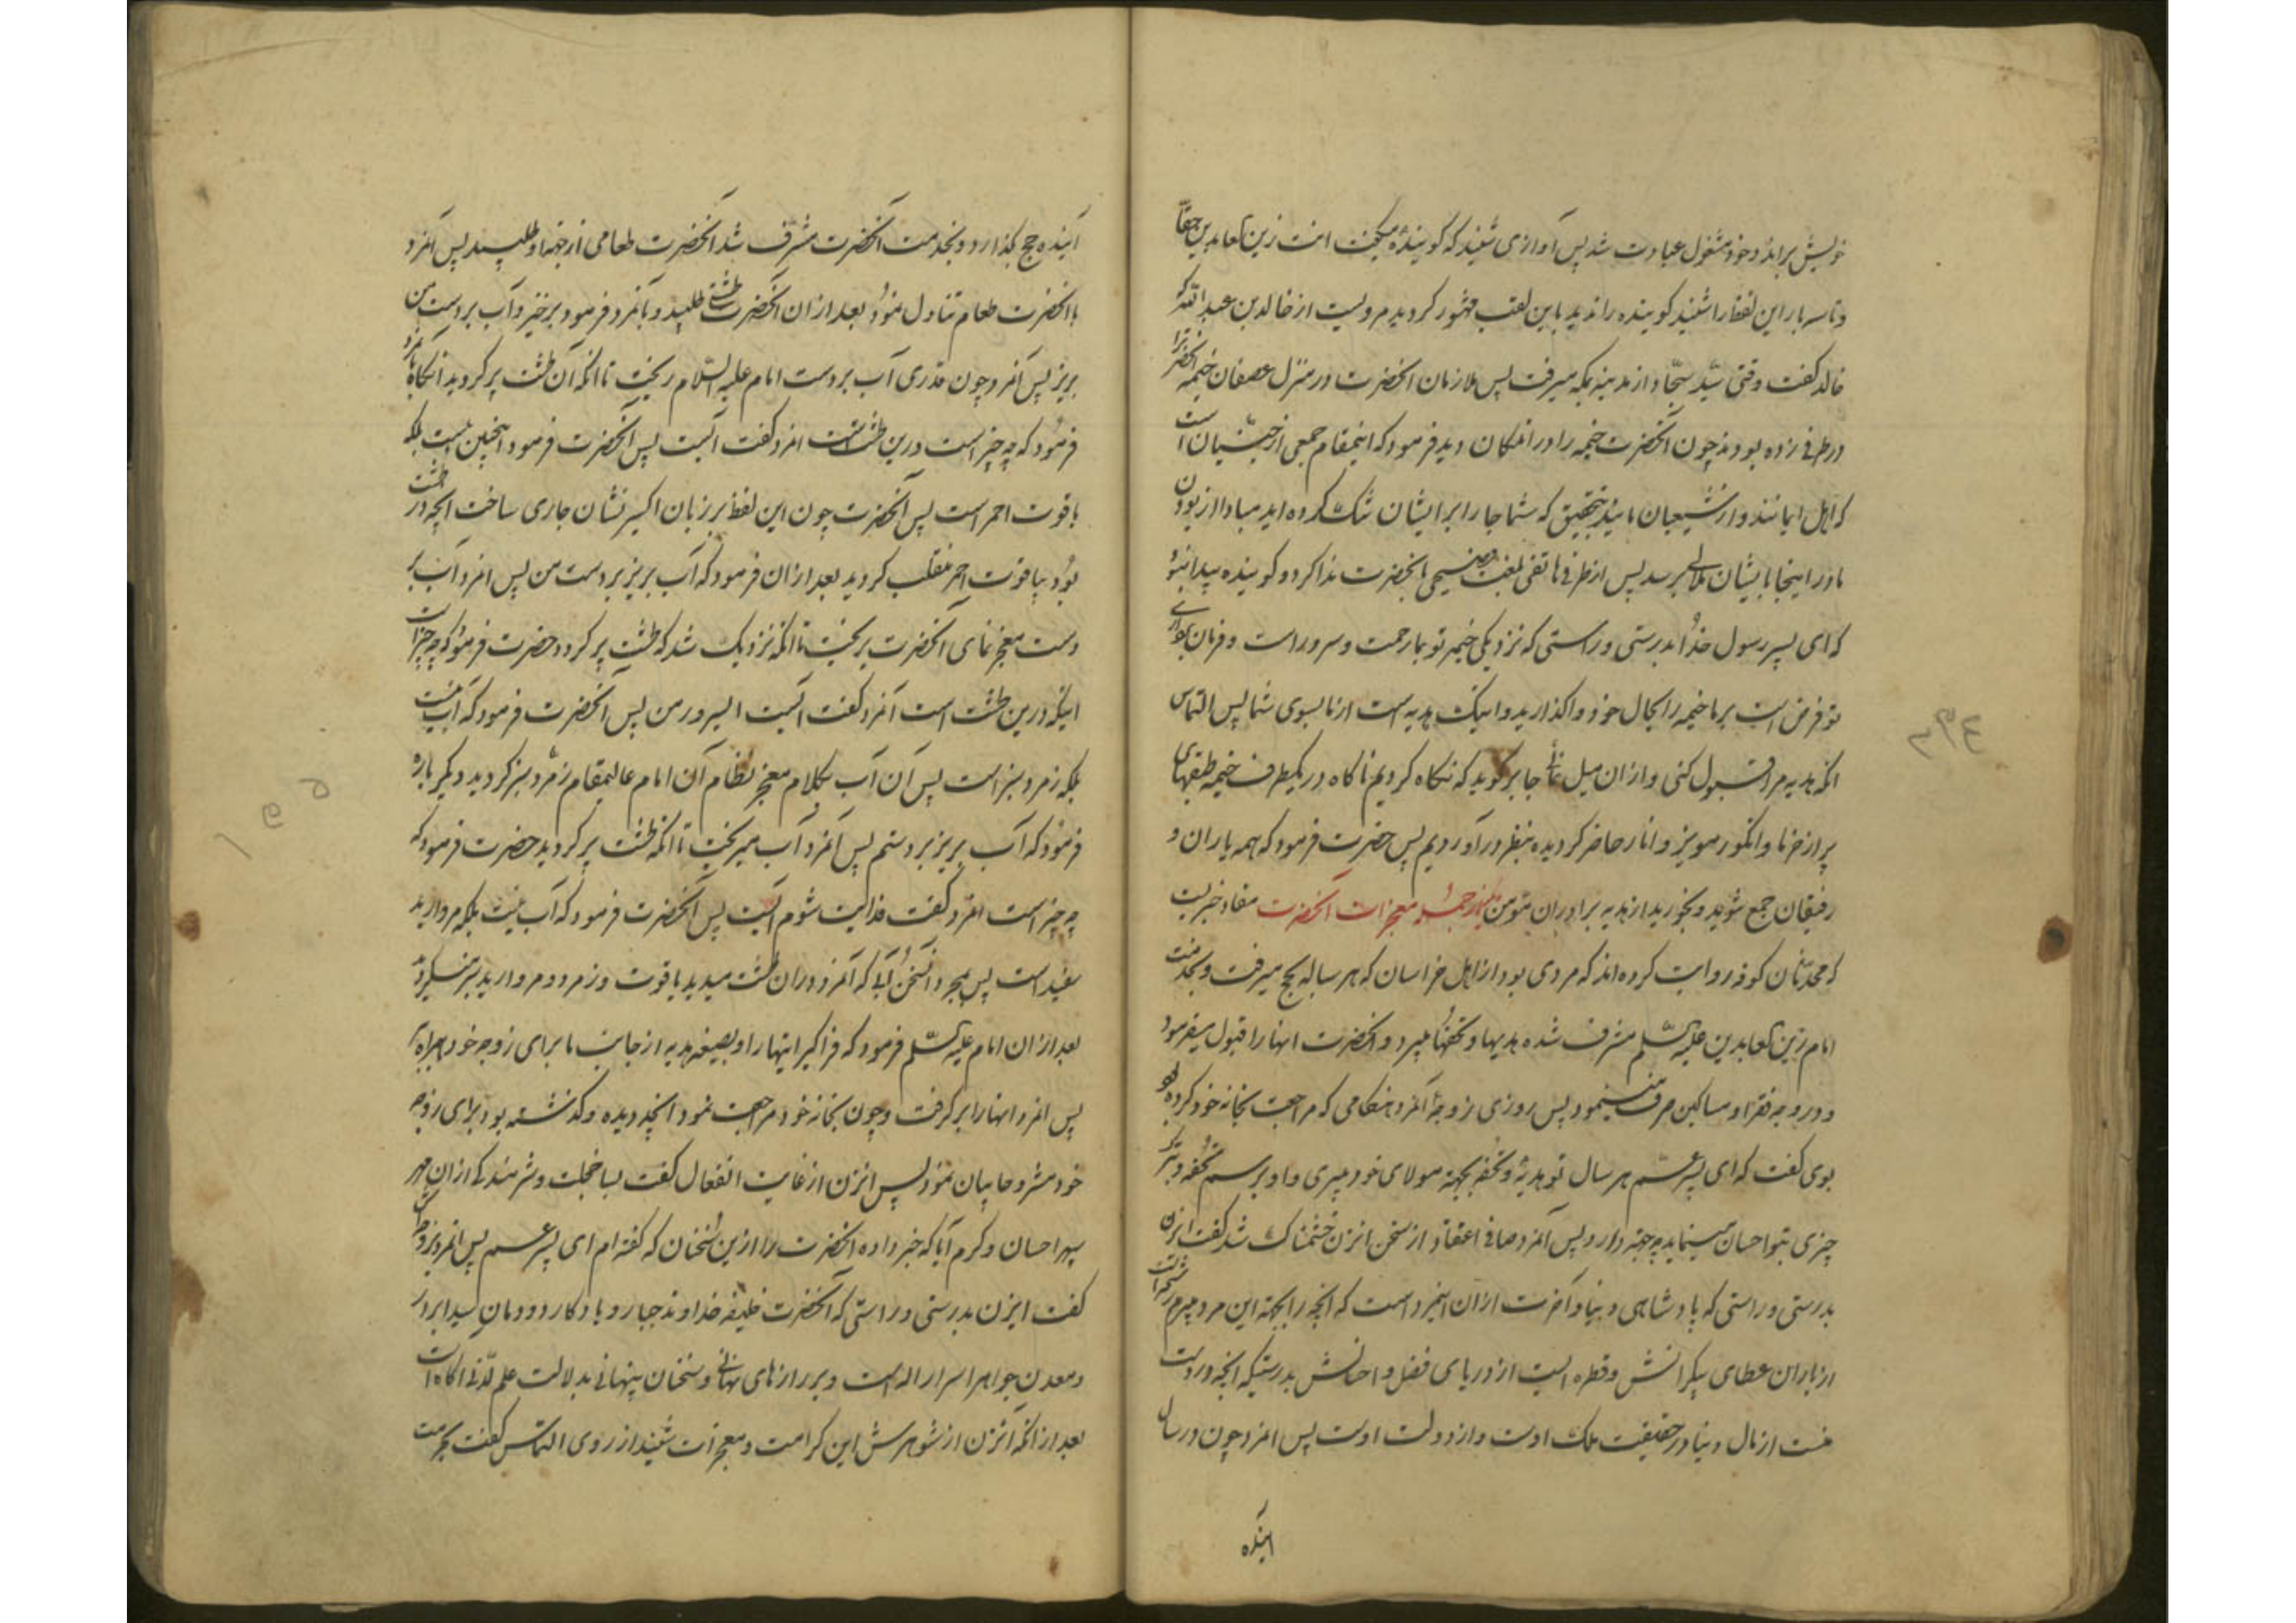 خویش براند و خود مشغول عبادت شد پس آوازی شنید که گوینده میگفت انت زین العابدین حقا
و تا سه بار این لفظ را شنید و گوینده را ندید باین لقب مشهور گردید مرویست از خالد بن عبدالله که
خالد گفت وقتی سید سجاد از مدینه بمکه میرفت پس ملازمان انحضرت در منزل عصفان خیمه انحضرترا
در طرفی زده بودند چون انحضرت خیمه را در انمکان دید فرمود که اینمقام جمعی از جنیان است
که اهل ایمانند و از شیعیان مایند بتحقیق که شما جا را بر ایشان تنک کرده اید مبادا از بودن
ما در اینجا بایشان ملالی برسد پس از طرفی هاتفی بلغت فصیحی بانحضرت ندا کرد و گوینده پیدا نبود
که ای پسر رسول خدا بدرستی و راستی که نزدیکی خیمه تو بما رحمت و سرور است و فرمان برداری
تو فرض است بر ما خیمه را بحال خود واگذارید و اینک هدیه است از ما بسوی شما پس التماس
انکه هدیه مرا قبول کنی و از ان میل نمائی جابر گوید که نگاه کردیم ناگاه در یکطرف خیمه طبقهای
پر از خرما و انگور و مویز و انار حاضر گردیده بنظر در آوردیم پس حضرت فرمود که همه یاران و
رفیقان جمع شوید و بخورید از هدیه برادران مؤمن نیز از جمله معجزات آنحضرت مفاد خبریست
که محدثان کوفه روایت کرده اند که مردی بود از اهل خراسان که هر ساله بحج میرفت و بخدمت
امام زین العابدین علیه السلم مشرف شده هدیها و تحفها میبرد و انحضرت انها را قبول میفرمود
و در وجه فقرا و مساکین صرف مینمود پس روزی زوجهٔ آنمرد هنگامی که مراجعت بخانه خود کرده بود
بوی گفت که ای پسر عم هر سال تو هدیه و تحفه بجهته مولای خود میبری و او برسم تحفه و تبرک
چیزی بتو احسان مینماید چه جهته دارد پس آنمرد صافی اعتقاد از سخن انزن خشمناک شد گفت ایزن
بدرستی و راستی که پادشاهی دنیا و آخرت ازان انمرد است که انچه را بجهته این مرد میبرم رشحه است
از باران عطای بیکرانش و قطره ایست از دریای فضل و احسانش بدرستیکه انچه در دست
منست از مال دنیا در حقیقت ملک اوست و از دولت اوست پس انمرد چون در سال
اینده
آینده حج بگذارد و بخدمت آنحضرت مشرف شد آنحضرت طعامی از جهته او طلبید پس آنمرد
با انحضرت طعام تناول نمود بعد از ان آنحضرت طشتی طلبید و بآنمرد فرمود برخیز و آب بر دست من
بریز پس آنمرد چون قدری آب بر دست امام علیه السلام ریخت تا آنکه آن طشت پر گردید آنگاه بآنمرد
فرمود که چه چیز است درین طشت انمرد گفت آبست پس آنحضرت فرمود اینچنین نیست بلکه
یاقوت احمر است پس آنحضرت چون این لفظ بر زبان اکسیر نشان جاری ساخت انچه در طشت
بود بیاقوت احمر منقلب گردید بعد ازان فرمود که آب بریز بر دست من پس انمرد آب بر
دست معجز نمای آنحضرت بریخت تا آنکه نزدیک شد که طشت پر گردد حضرت فرمود که چه چیز است
اینکه درین طشت است آنمرد گفت آبست ای سرور من پس آنحضرت فرمود که آب نیست
بلکه زمرد سبز است پس آن آب بکلام معجز نظام آن امام عالیمقام زمرد سبز گردید دیگر باره
فرمود که آب بریز بر دستم پس آنمرد آب میریخت تا آنکه طشت پر گردید حضرت فرمود که
چه چیز است انمرد گفت فدایت شوم آبست پس آنحضرت فرمود که آب نیست بلکه مروارید
سفید است پس بمجرد انسخن آبی که آنمرد دران طشت میدید یاقوت و زمرد و مروارید بنظرش
بعد ازان امام علیه السلم فرمود که فراگیر اینها را و بصیغه هدیه از جانب ما برای زوجه خود همراه بر
پس انمرد انها را برگرفت و چون بخانه خود مراجعت نمود انچه دیده و گذشته بود برای زوجه
خود مشروحا بیان نمود پس انزن از غایت انفعال گفت بسا خجلت و شرمندگی ازان مهر
سپهر احسان و کرم آیا که خبر داده انحضرت را ازین سخنان که گفته ام ای پسر عم پس انمرد بزوجه اش
گفت ایزن بدرستی و راستی که آنحضرت خلیفه خداوند جبار و یادگار دودمان سید ابرار
و معدن جواهر اسرار اله است و بر رازهای نهانی و سخنان پنهانی بدلالت علم لدنی آگاه است
بعد از انکه آنزن از شوهرش این کرامت و معجزات شنید از روی التماس گفت بحرمت